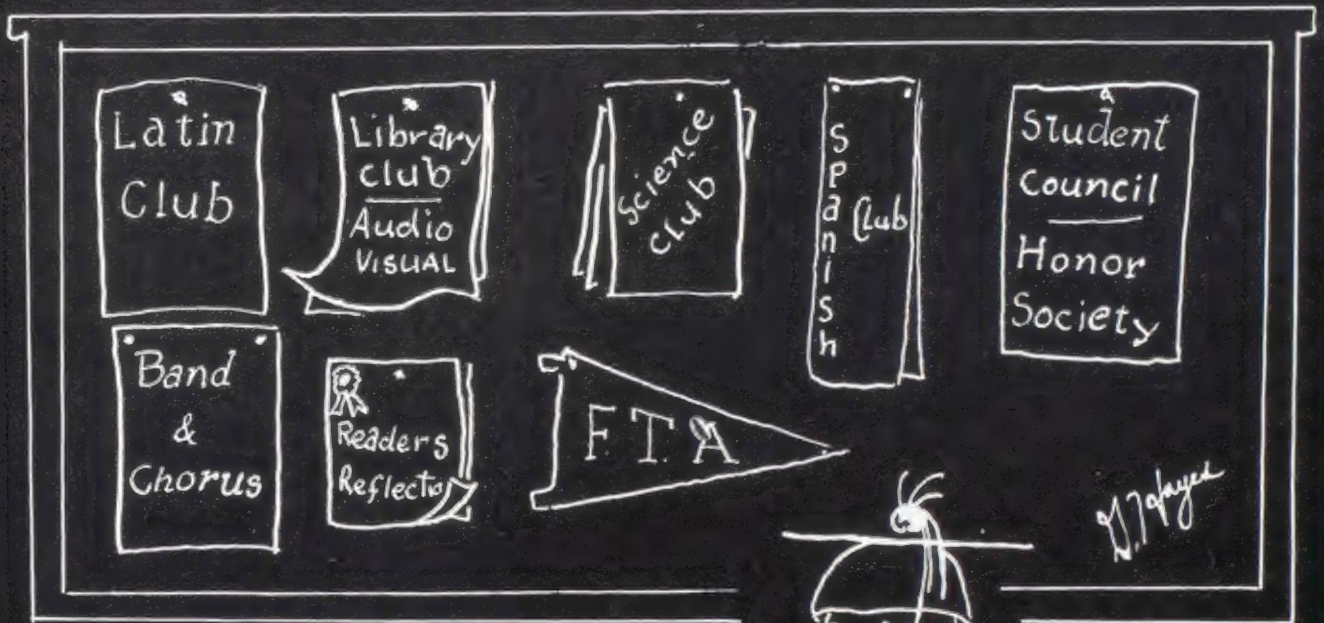 Latin
Club
Library
Club
Audio
VISUAL
Science
CLUB
Spanish
Club
Student
Council
Honor
Society
Band
&
Chorus
Readers
Reflectio
F.T.A